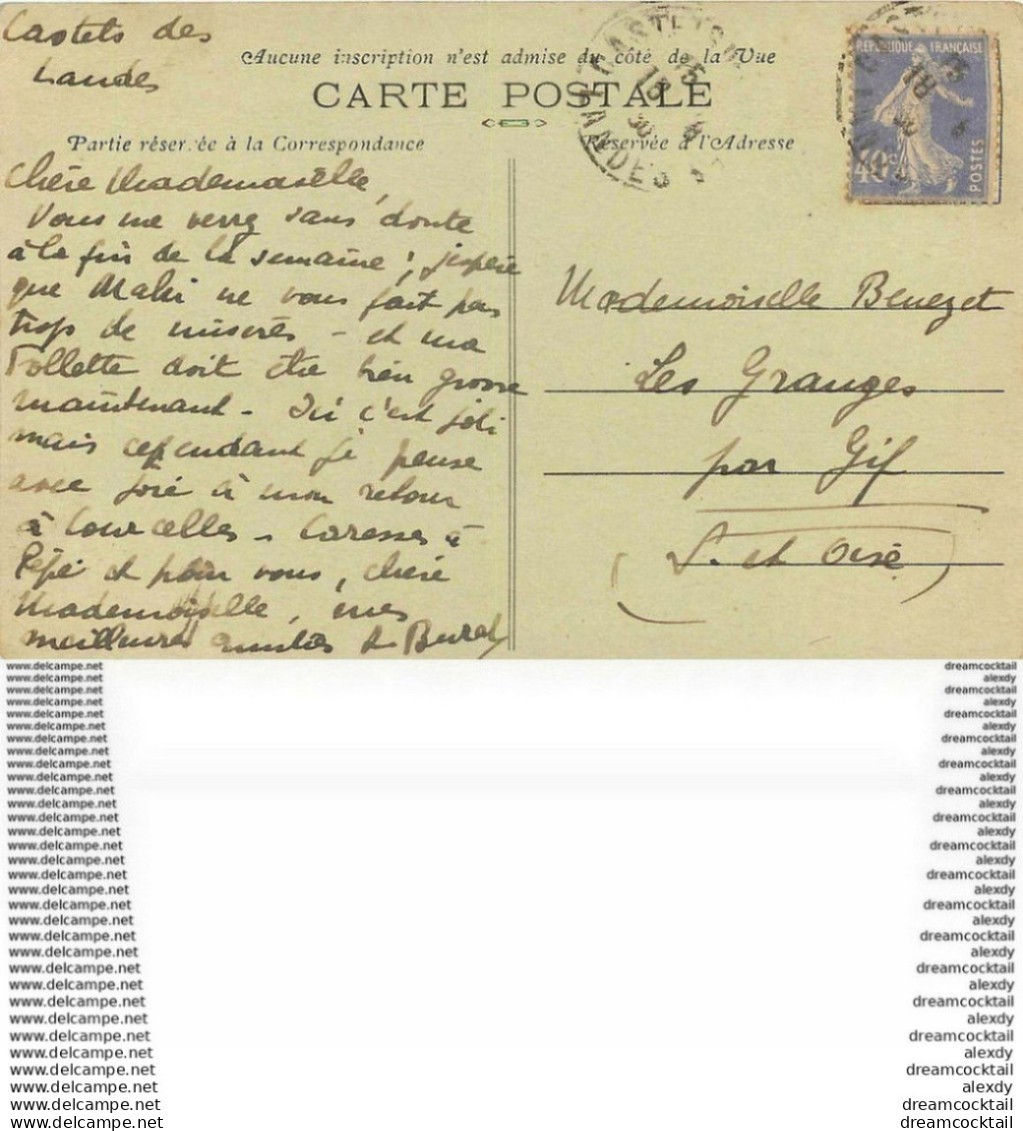 Castets des
Landes
Aucune inscription n'est admise du côté de la Vue
CARTE POSTALE
Partie réservée à la Correspondance
Réservée à l'Adresse
CASTETS
LANDES
15
18
30
RÉPUBLIQUE FRANÇAISE
POSTES
40c
Chère Mademoiselle,
Vous me verrez sans doute
à la fin de la semaine ; j'espère
que Maki ne vous fait pas
trop de misères - et ma
Follette doit être bien grosse
maintenant - Ici c'est joli
mais cependant je pense
avec joie à mon retour
à Courcelles - Caresses à
Pépé et pour vous, chère
Mademoiselle, mes
meilleures amitiés
Mademoiselle Benezet
Les Granges
par Gif
(S. et Oise)
www.delcampe.net dreamcocktail
www.delcampe.net alexdy
www.delcampe.net dreamcocktail
www.delcampe.net alexdy
www.delcampe.net dreamcocktail
www.delcampe.net alexdy
www.delcampe.net dreamcocktail
www.delcampe.net alexdy
www.delcampe.net dreamcocktail
www.delcampe.net alexdy
www.delcampe.net dreamcocktail
www.delcampe.net alexdy
www.delcampe.net dreamcocktail
www.delcampe.net alexdy
www.delcampe.net dreamcocktail
www.delcampe.net alexdy
www.delcampe.net dreamcocktail
www.delcampe.net alexdy
www.delcampe.net dreamcocktail
www.delcampe.net alexdy
www.delcampe.net dreamcocktail
www.delcampe.net alexdy
www.delcampe.net dreamcocktail
www.delcampe.net alexdy
www.delcampe.net dreamcocktail
www.delcampe.net alexdy
www.delcampe.net dreamcocktail
www.delcampe.net alexdy
www.delcampe.net dreamcocktail
www.delcampe.net alexdy
www.delcampe.net dreamcocktail
www.delcampe.net dreamcocktail